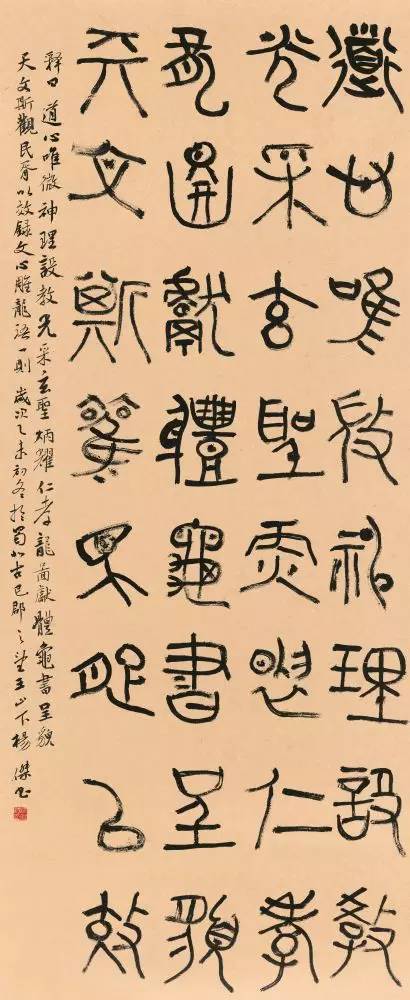 道心唯微神理設教
光采玄聖炳耀仁孝
龍圖獻體龜書呈貌
天文斯觀民胥以效
釋曰道心唯微神理設教光采玄聖炳耀仁孝龍圖獻體龜書呈貌
天文斯觀民胥以效錄文心雕龍語一則歲次乙未初冬於蜀北古巴郡之望王山下楊傑